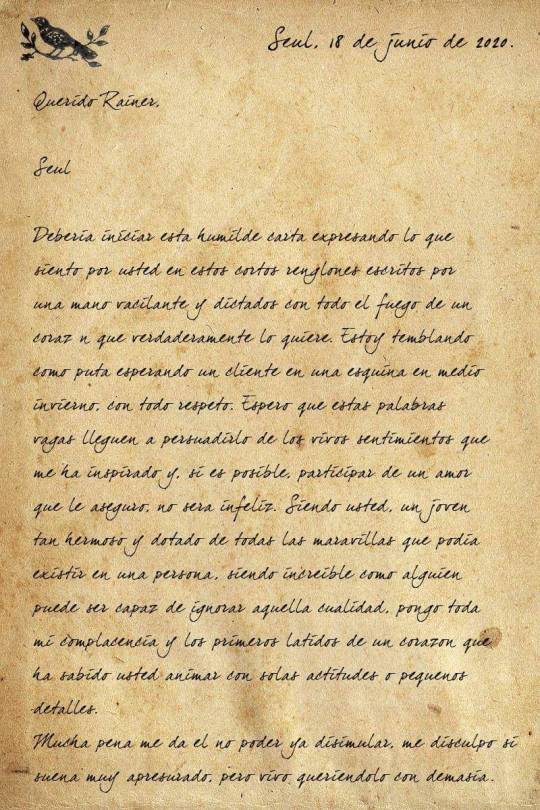 Seul, 18 de junio de 2020.
Querido Rainer,
Seul
Deberia iniciar esta humilde carta expresando lo que
siento por usted en estos cortos renglones escritos por
una mano vacilante y dictados con todo el fuego de un
coraz n que verdaderamente lo quiere. Estoy temblando
como puta esperando un cliente en una esquina en medio
invierno, con todo respeto. Espero que estas palabras
vagas lleguen a persuadirlo de los vivos sentimientos que
me ha inspirado y, si es posible, participar de un amor
que le aseguro, no sera infeliz. Siendo usted, un joven
tan hermoso y dotado de todas las maravillas que podia
existir en una persona, siendo increible como alguien
puede ser capaz de ignorar aquella cualidad, pongo toda
mi complacencia y los primeros latidos de un corazon que
ha sabido usted animar con solas actitudes o pequenos
detalles.
Mucha pena me da el no poder ya disimular, me disculpo si
suena muy apresurado, pero vivo queriendolo con demasia.